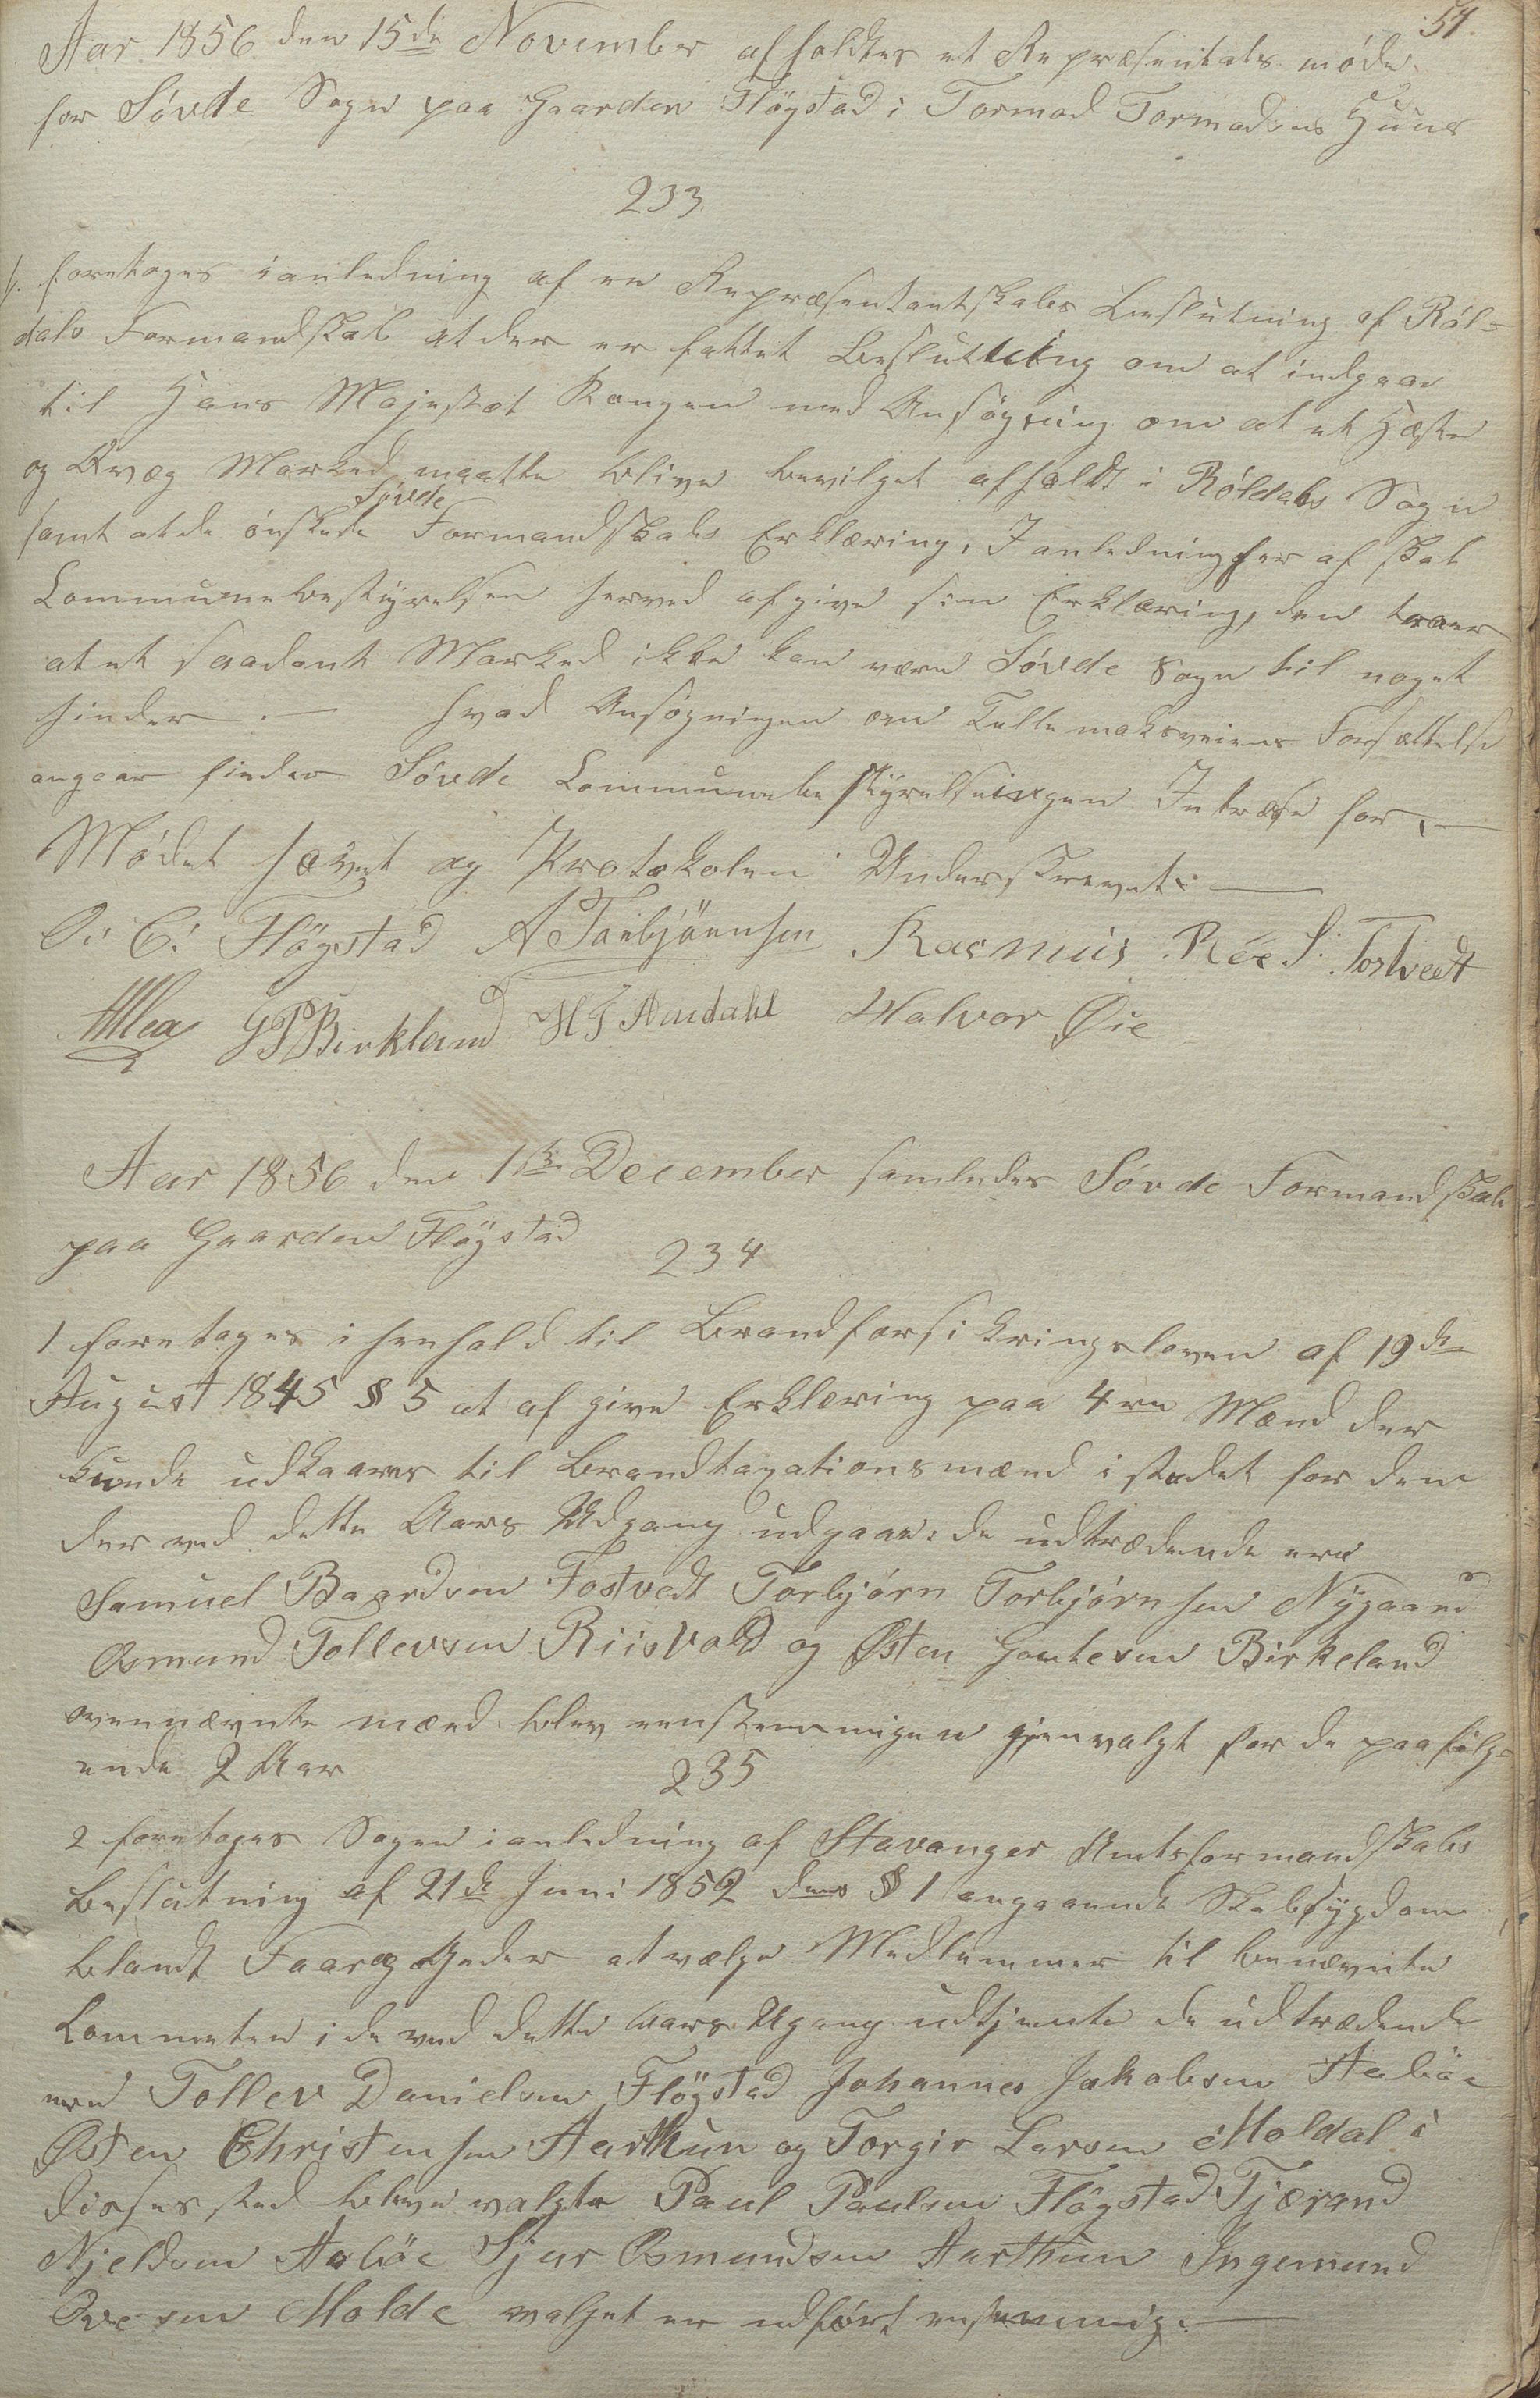 57.
Aar 1856 den 15de November afholdtes et Repræsentats møde
for Søvde Sogn paa Gaarden Fløgstad i Tormod Tormodsens Huus
233
1. foretoges ianledning af en Repræsentantskabs Beslutning af Røl-
dals Formandskab at der er fattet Beslutning om at indgaae
til Hans Majestæt Kongen med Ansøgning om at et Heste
og Qvæg Marked maatte blive bevilget afholdt i Røldals Sogn
Søvde
samt at de ønskede Formandskabs Erklæring, I anledning her af skal
Communebestyrelsen herved afgive sin Erklæring, den troer
at et saadant Marked ikke kan være Søvde Sogn til noget
hinder. — hvad Ansøgningen om Tellemaksveiens Forsættelse
angaar finder Søvde Communebestyrelse ingen Intresse for. —
Mødet hævet og Protokolen Underskrevet: —
O. C. Fløgstad A Torbjörnsen Rasmus Røe S. Tostvedt
GPBirkland HT Amdahl Halvor Øie
Aar 1856 den 1ste December samledes Søvde Formandskab
paa Gaarden Fløgstad
234
1 foretoges i henhold til Brandforsikringsloven af 19de
August 1845 § 5 at afgive Erklæring paa 4re Mænd der
kunde udkaares til Brandtaxationsmænd i stedet for dem
der ved dette Aars Udgang udgaar: de udtrædende ere
Samuel Baardsen Tostvedt Torbjørn Torbjørnsen Nygaard
Osmund Tollevsen Riisvold og Østen Gautesen Birkeland
ovennævnte mænd blev eenstemmigen gjenvalgt for de paafølg-
ende 2 Aar
235
2 foretoges Sagen ianledning af Stavanger Amtsformandskabs
Beslutning af 21de Juni 1852 dens § 1 angaaende Skabsygdom
blandt Faar og Geder at vælge Medlemmer til benævnte
Commeten i de ved dette Aars Ugang udtjente de udtrædende
ere Tollev Danielsen Fløgstad Johannes Jakobsen Aabøe
Østen Christensen Aarthun og Torgir Larsen Moldal i
disses sted bleve valgte Paul Paulsen Fløgstad Tjærand
Njeldsen Aabøe Sjur Osmundsen Aarthun Ingemund
Ovesen Molde valget er udført enstemmig. —